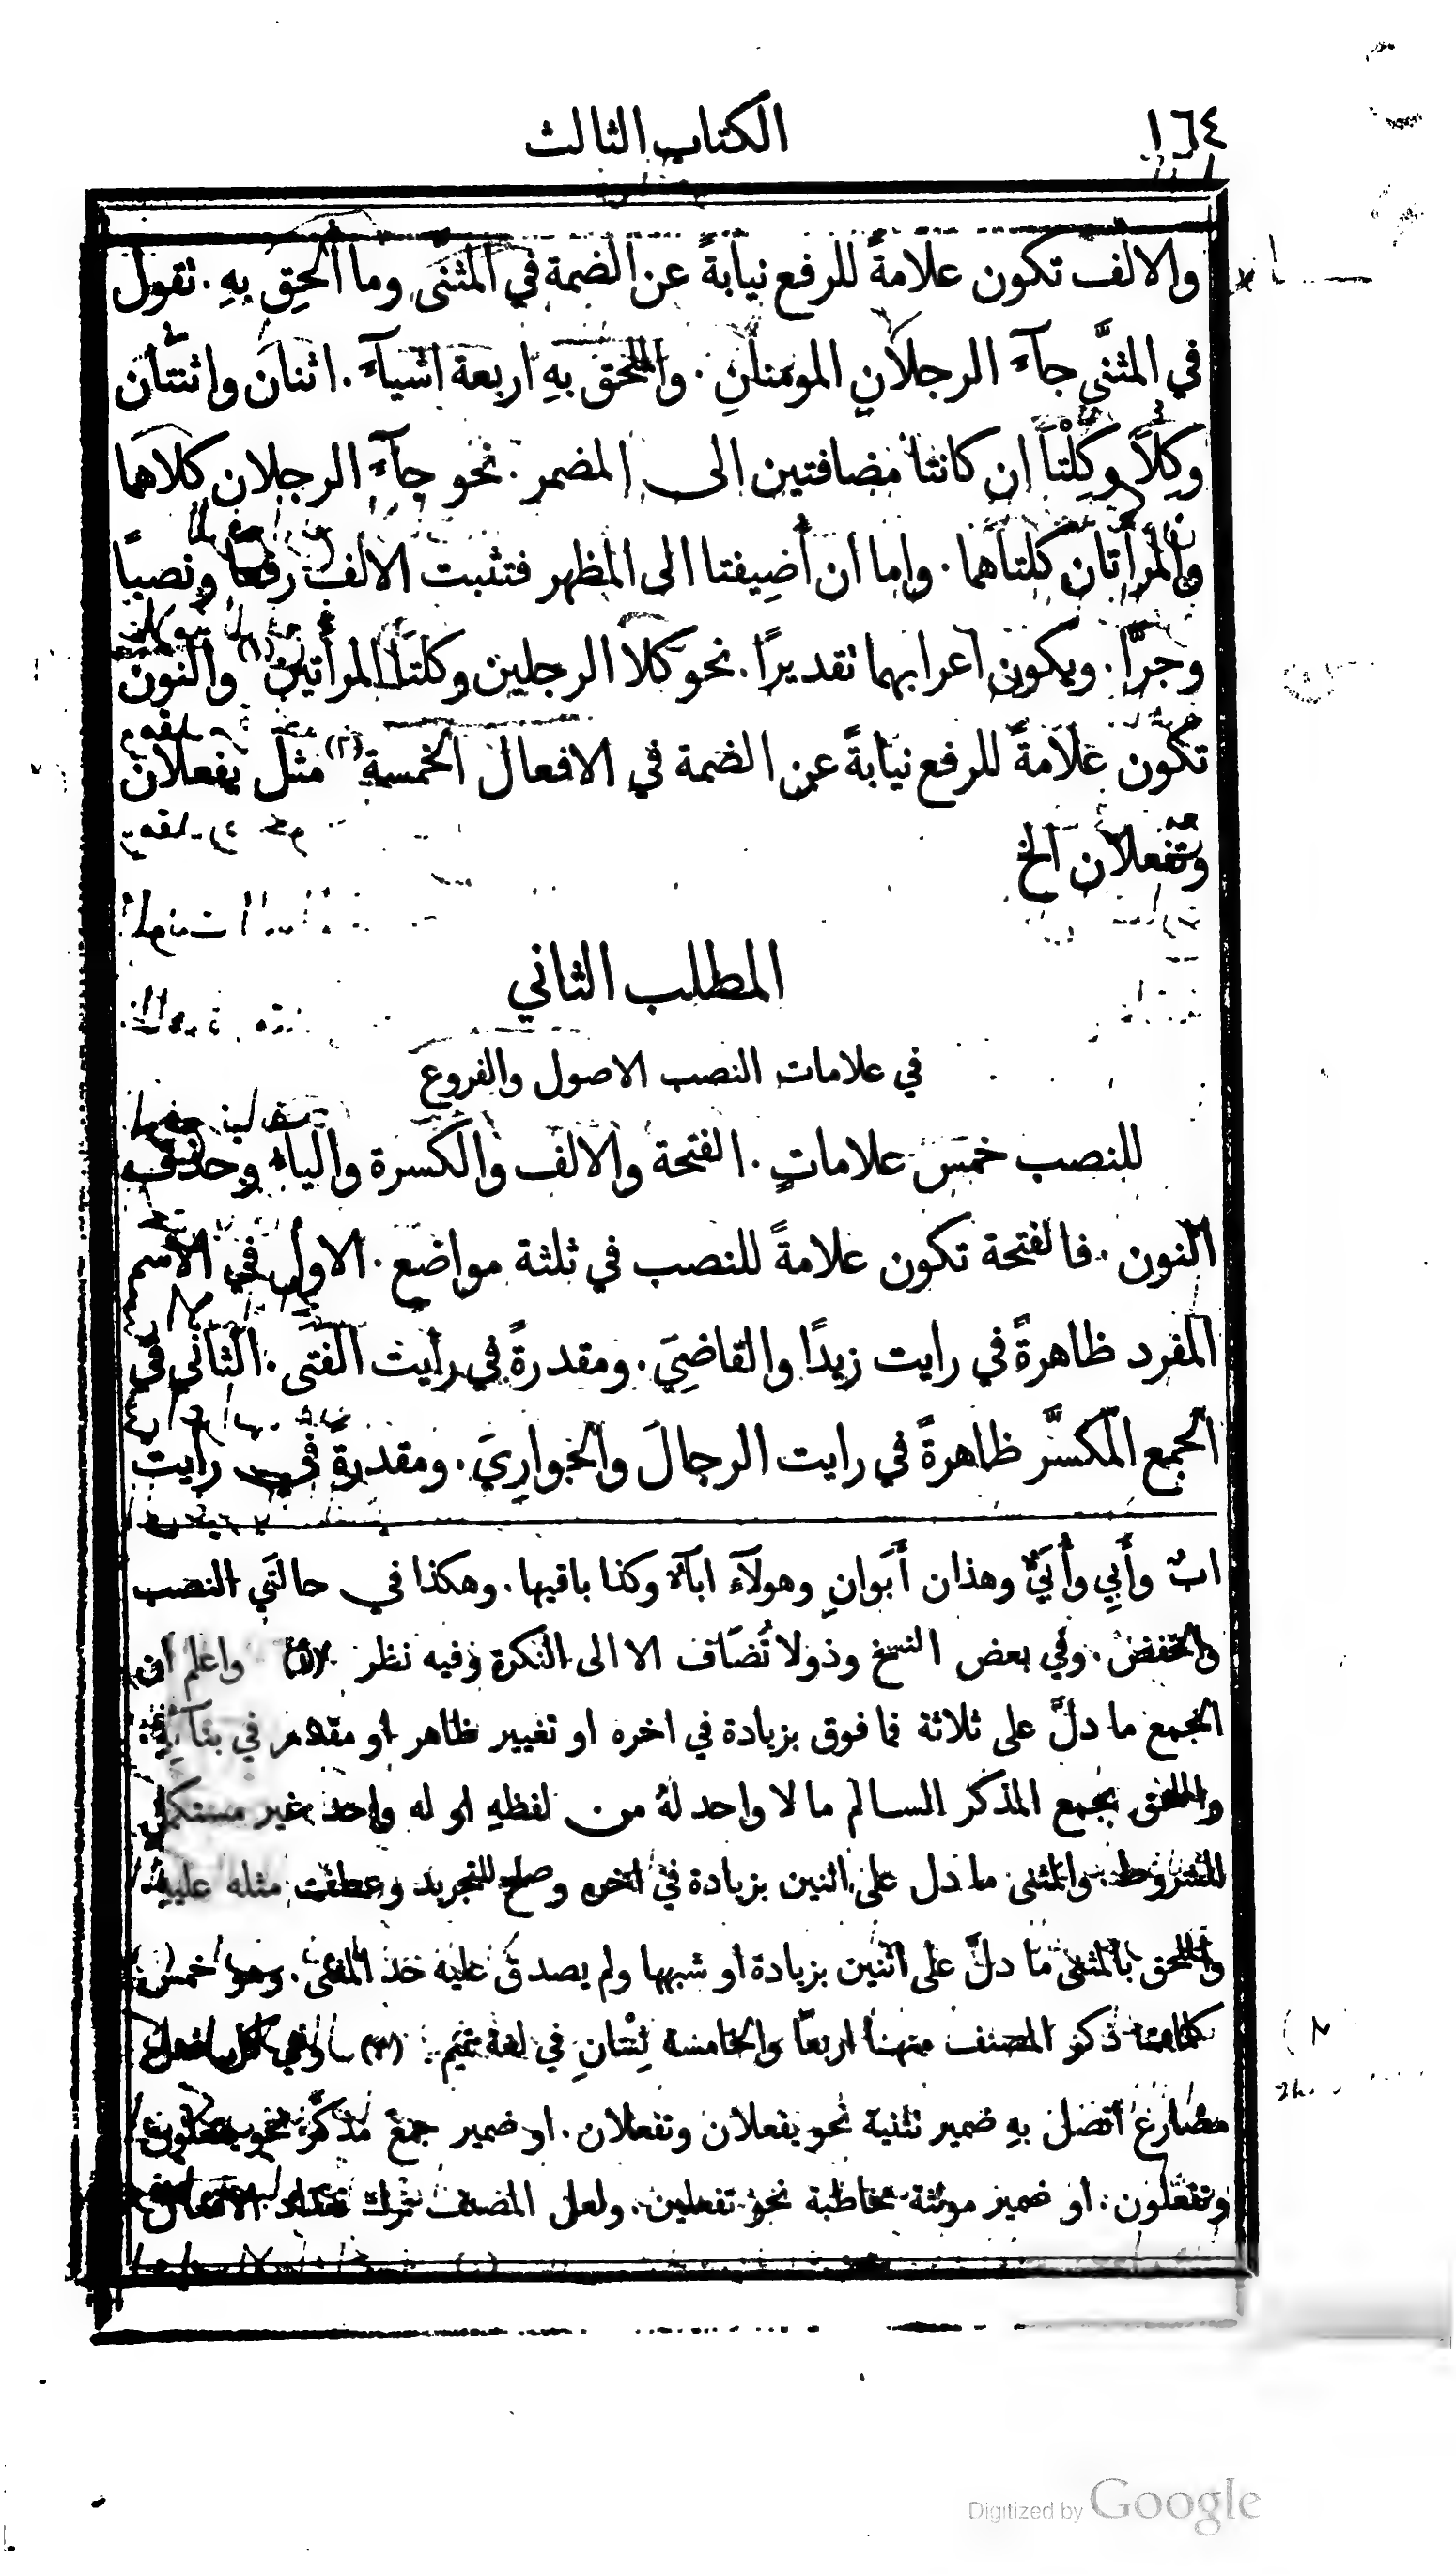 ١٦٤
الكتاب الثالث
والالف تكون علامةً للرفع نيابةً عن الضمة في المثنى وما أُلحِق بهِ . نقول
في المثنَّى جآء الرجلانِ المومنانِ . والملحق بهِ اربعة اشيآء . اثنان واثنتان
وكِلَا وكِلْتا ان كانتا مضافتين الى المضمر . نحو جآء الرجلان كلاهما
والمرأتان كلتاهما . واما ان أُضِيفتا الى المظهر فتثبت الالف رفعًا ونصبًا
وجرًّا . ويكون اعرابهما نقديرًا . نحو كلا الرجلين وكلتا المرأتين (١) والنون
تكون علامةً للرفع نيابةً عن الضمة في الافعال الخمسة (٢) مثل يفعلان
وتفعلان الخ
المطلب الثاني
في علامات النصب الاصول والفروع
للنصب خمس علاماتٍ . الفتحة والالف والكسرة واليآء وحذف
النون . فالفتحة تكون علامةً للنصب في ثلثة مواضع . الاول في الاسم
المفرد ظاهرةً في رايت زيدًا والقاضِيَ . ومقدرةً في رايت الفتى . الثاني في
الجمع المكسَّر ظاهرةً في رايت الرجالَ والجوارِيَ . ومقدرةً في رايت
ابٌ وأَبِي وأُبَيٌّ وهذان أَبَوانِ وهولآء ابآء وكذا باقيها . وهكذا في حالتَي النصب
والخفض . وفي بعض النسخ وذو لا تُضاف الا الى النكرة وفيه نظر (١) واعلم ان
الجمع ما دلَّ على ثلاثة فما فوق بزيادة في اخره او تغيير ظاهر او مقدر في بنآئهِ
والملحق بجمع المذكر السالم ما لا واحد لهُ من لفظهِ او له واحد غير مستكمل
للشروط . والمثنى ما دل على اثنين بزيادة في اخره وصلح للتجريد وعطف مثله عليهِ
والملحق بالمثنى ما دلَّ على اثنين بزيادة او شبهها ولم يصدق عليه حد المثنى . وهو خمس
كلمات ذكر المصنف منهنا اربعًا والخامسة ثِنْتانِ في لغة تميم . (٢) وفي كل فعل
مضارع اتصل بهِ ضمير نثنية نحو يفعلان وتفعلان . او ضمير جمع مذكَّر نحو يفعلون
وتفعلون . او ضمير مونثة مخاطبة نحو تفعلين . ولعل المصنف ترك تعداد الافعال
Digitized by Google